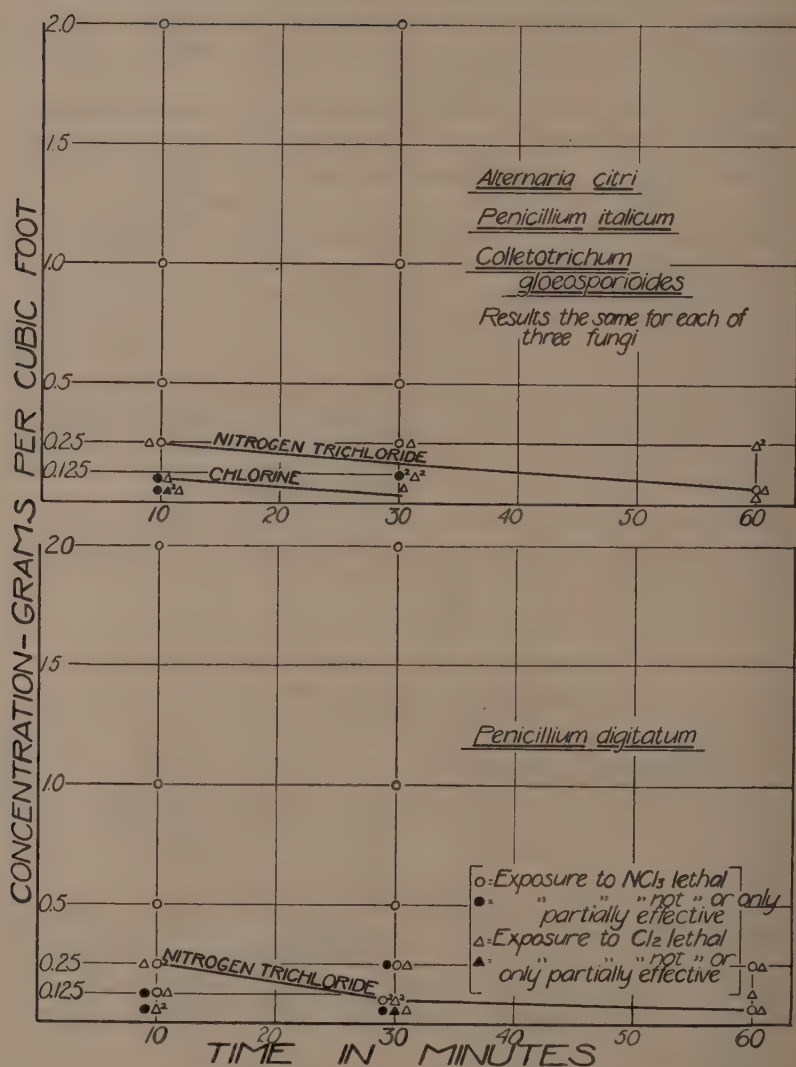 CONCENTRATION-GRAMS PER CUBIC FOOT
2.0
1.5
1.0
0.5
0.25
0.125
Alternaria citri
Penicillium italicum
Colletotrichum
gloeosporioides
Results the same for each of
three fungi
NITROGEN TRICHLORIDE
CHLORINE
2
2 2
2
10 20 30 40 50 60
2.0
1.5
1.0
0.5
0.25
0.125
Penicillium digitatum
o=Exposure to NCl3 lethal
●= " " " not " or only
partially effective
△=Exposure to Cl2 lethal
▲= " " " not " or
only partially effective
NITROGEN TRICHLORIDE
2 2
2
10 20 30 40 50 60
TIME IN MINUTES